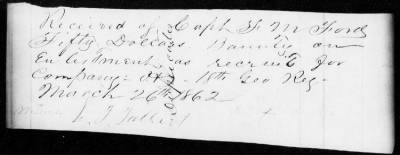 Received of Capt F. M Ford
Fifty Dollars Bounty on
Enlistment as recruit for
Company 18th Geo Reg.
March 26th 1862